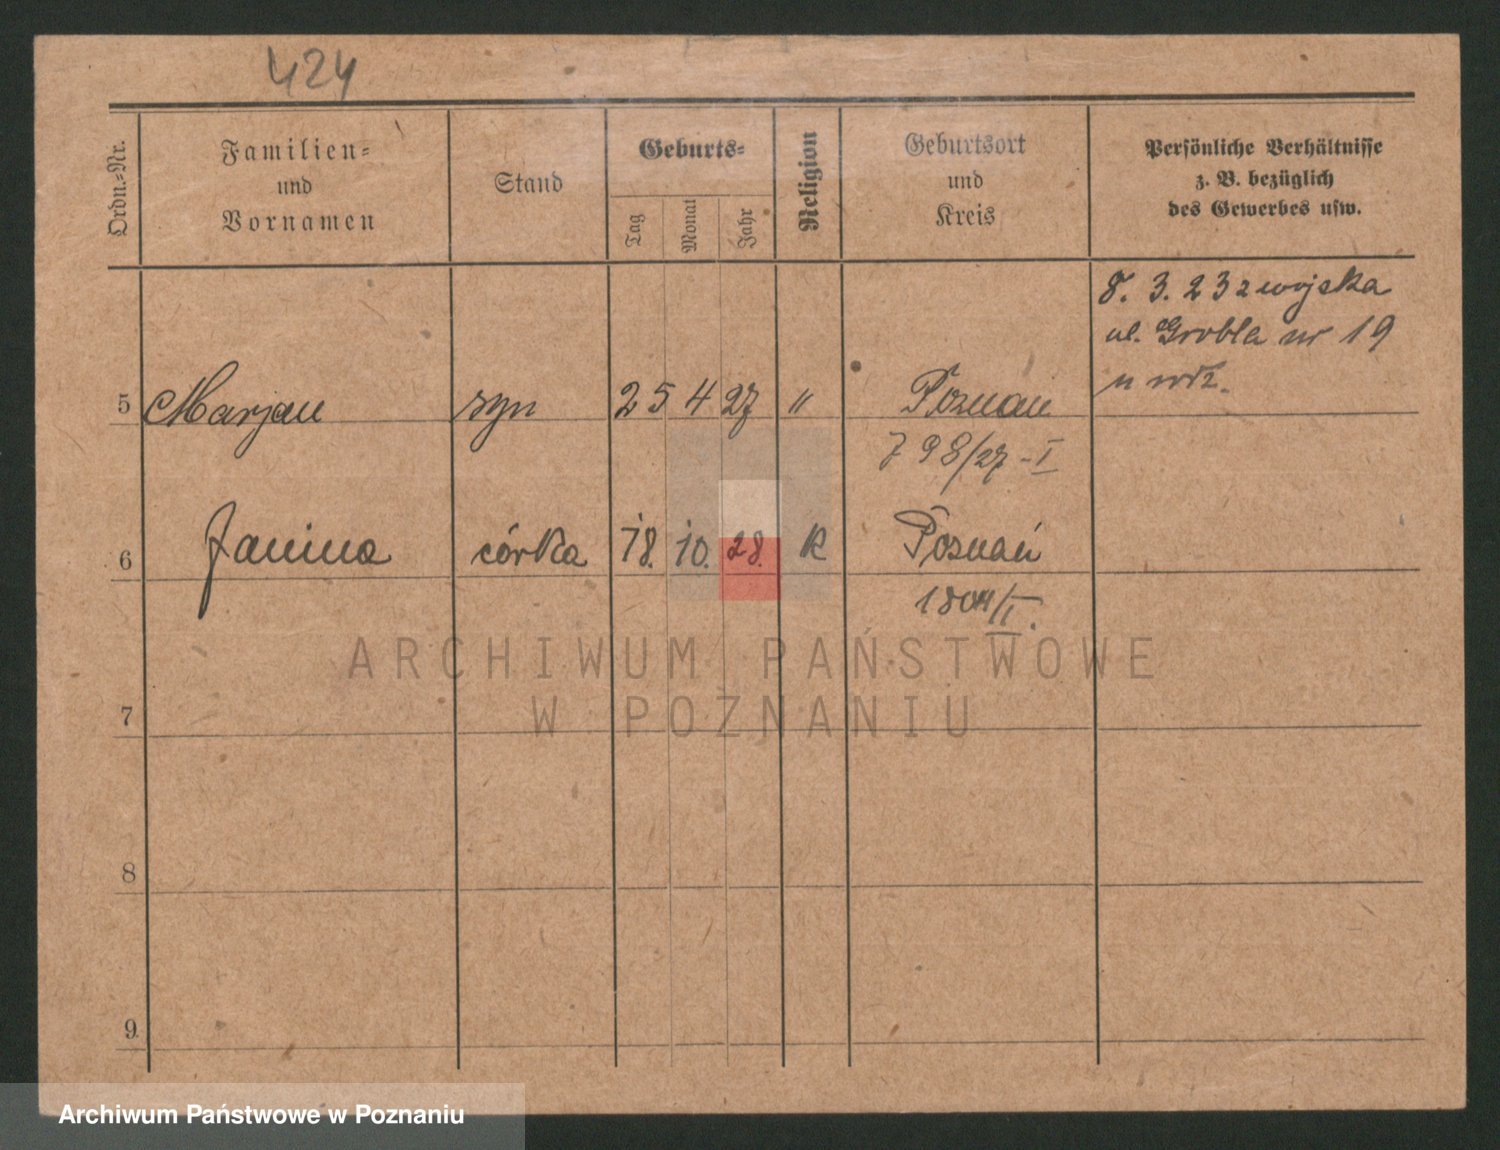 424
Ordn.-Nr.
Familien-
und
Vornamen
Stand
Geburts-
Tag
Monat
Jahr
Religion
Geburtsort
und
Kreis
Persönliche Verhältnisse
z. B. bezüglich
des Gewerbes usw.
8. 3. 23 z wojska
ul. Grobla nr 19
u rodz.
5 Marjan syn 25 4 27 " Poznań
798/27 - I
6 Janina córka 18. 10. 28. K Poznań
1804/II.
ARCHIWUM PAŃSTWOWE
W POZNANIU
7
8
9
Archiwum Państwowe w Poznaniu